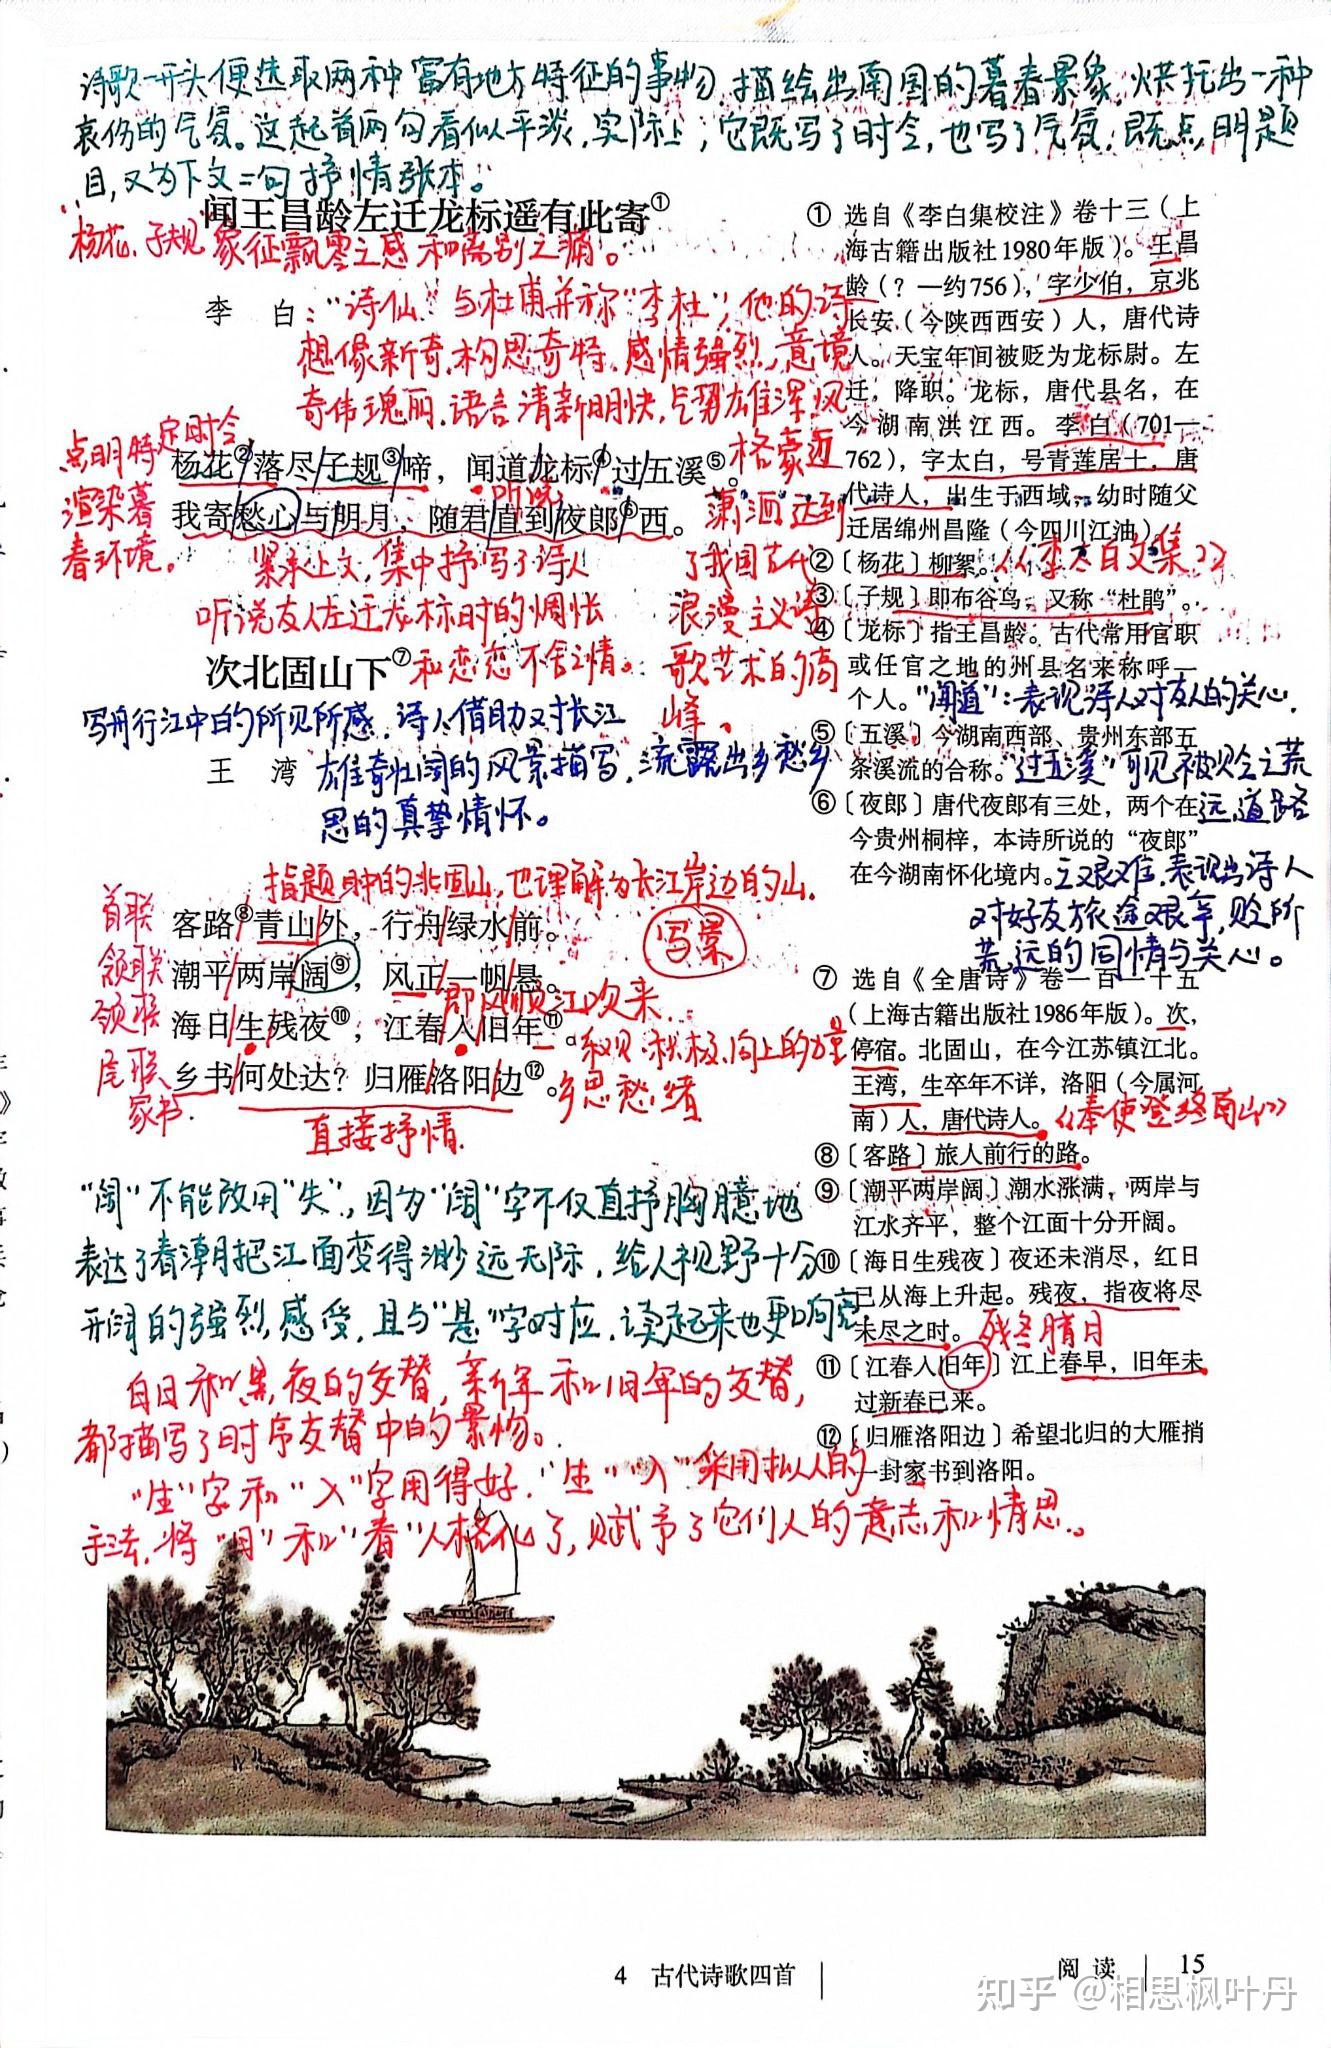 诗歌一开头便选取两种富有地方特征的事物,描绘出南国的暮春景象,烘托出一种
哀伤的气氛。这起首两句看似平淡,实际上,它既写了时令,也写了气氛,既点明题
目,又为下文二句抒情张本。
闻王昌龄左迁龙标遥有此寄①
“杨花、子规”象征飘零之感和离别之痛。
李 白:“诗仙”与杜甫并称“李杜”,他的诗
想像新奇,构思奇特,感情强烈,意境
奇伟瑰丽,语言清新明快,气势雄浑,风
格豪迈
潇洒,达到
了我国古代
浪漫主义诗
歌艺术的高
峰。
点明特定时令
渲染暮
春环境。
杨花②落尽子规③啼,闻道龙标④过五溪⑤。
听说
我寄愁心与明月,随君直到夜郎⑥西。
紧承上文,集中抒写了诗人
听说友人左迁龙标时的惆怅
和恋恋不舍之情。
次北固山下⑦
写舟行江中的所见所感,诗人借助对长江
王 湾 雄奇壮阔的风景描写,流露出乡愁乡
思的真挚情怀。
指题目中的北固山,也理解为长江岸边的山。
首联 客路⑧青山外,行舟绿水前。
写景
颔联 潮平两岸阔⑨,风正一帆悬。
即风顺江吹来
颈联 海日生残夜⑩,江春入旧年⑪。积极、向上的力量
尾联 乡书何处达?归雁洛阳边⑫。乡思愁绪
家书.
直接抒情.
“阔”不能改用“失”,因为“阔”字不仅直抒胸臆地
表达了春潮把江面变得渺远无际,给人视野十分
开阔的强烈感受,且与“悬”字对应,读起来也更响亮
白日和黑夜的交替,新年和旧年的交替,
都描写了时序交替中的景物。
“生”字和“入”字用得好,“生”“入”采用拟人的
手法,将“日”和“春”人格化了,赋予了它们人的意志和情思。
① 选自《李白集校注》卷十三(上
海古籍出版社1980年版)。王昌
龄(?—约756),字少伯,京兆
长安(今陕西西安)人,唐代诗
人。天宝年间被贬为龙标尉。左
迁,降职。龙标,唐代县名,在
今湖南洪江西。李白(701—
762),字太白,号青莲居士,唐
代诗人,出生于西域,幼时随父
迁居绵州昌隆(今四川江油)。
②〔杨花〕柳絮。《李太白文集》
③〔子规〕即布谷鸟,又称“杜鹃”。
④〔龙标〕指王昌龄。古代常用官职
或任官之地的州县名来称呼一
个人。“闻道”:表现诗人对友人的关心.
⑤〔五溪〕今湖南西部、贵州东部五
条溪流的合称。“过五溪”可见被贬之荒
⑥〔夜郎〕唐代夜郎有三处,两个在远,道路
今贵州桐梓,本诗所说的“夜郎”
在今湖南怀化境内。之艰难,表现出诗人
对好友旅途艰辛,贬所
荒远的同情与关心。
⑦ 选自《全唐诗》卷一百一十五
(上海古籍出版社1986年版)。次,
停宿。北固山,在今江苏镇江北。
王湾,生卒年不详,洛阳(今属河
南)人,唐代诗人。《奉使登终南山》
⑧〔客路〕旅人前行的路。
⑨〔潮平两岸阔〕潮水涨满,两岸与
江水齐平,整个江面十分开阔。
⑩〔海日生残夜〕夜还未消尽,红日
已从海上升起。残夜,指夜将尽
未尽之时。残冬腊月
⑪〔江春入旧年〕江上春早,旧年未
过新春已来。
⑫〔归雁洛阳边〕希望北归的大雁捎
一封家书到洛阳。
4 古代诗歌四首
阅读 15
知乎 @相思枫叶丹